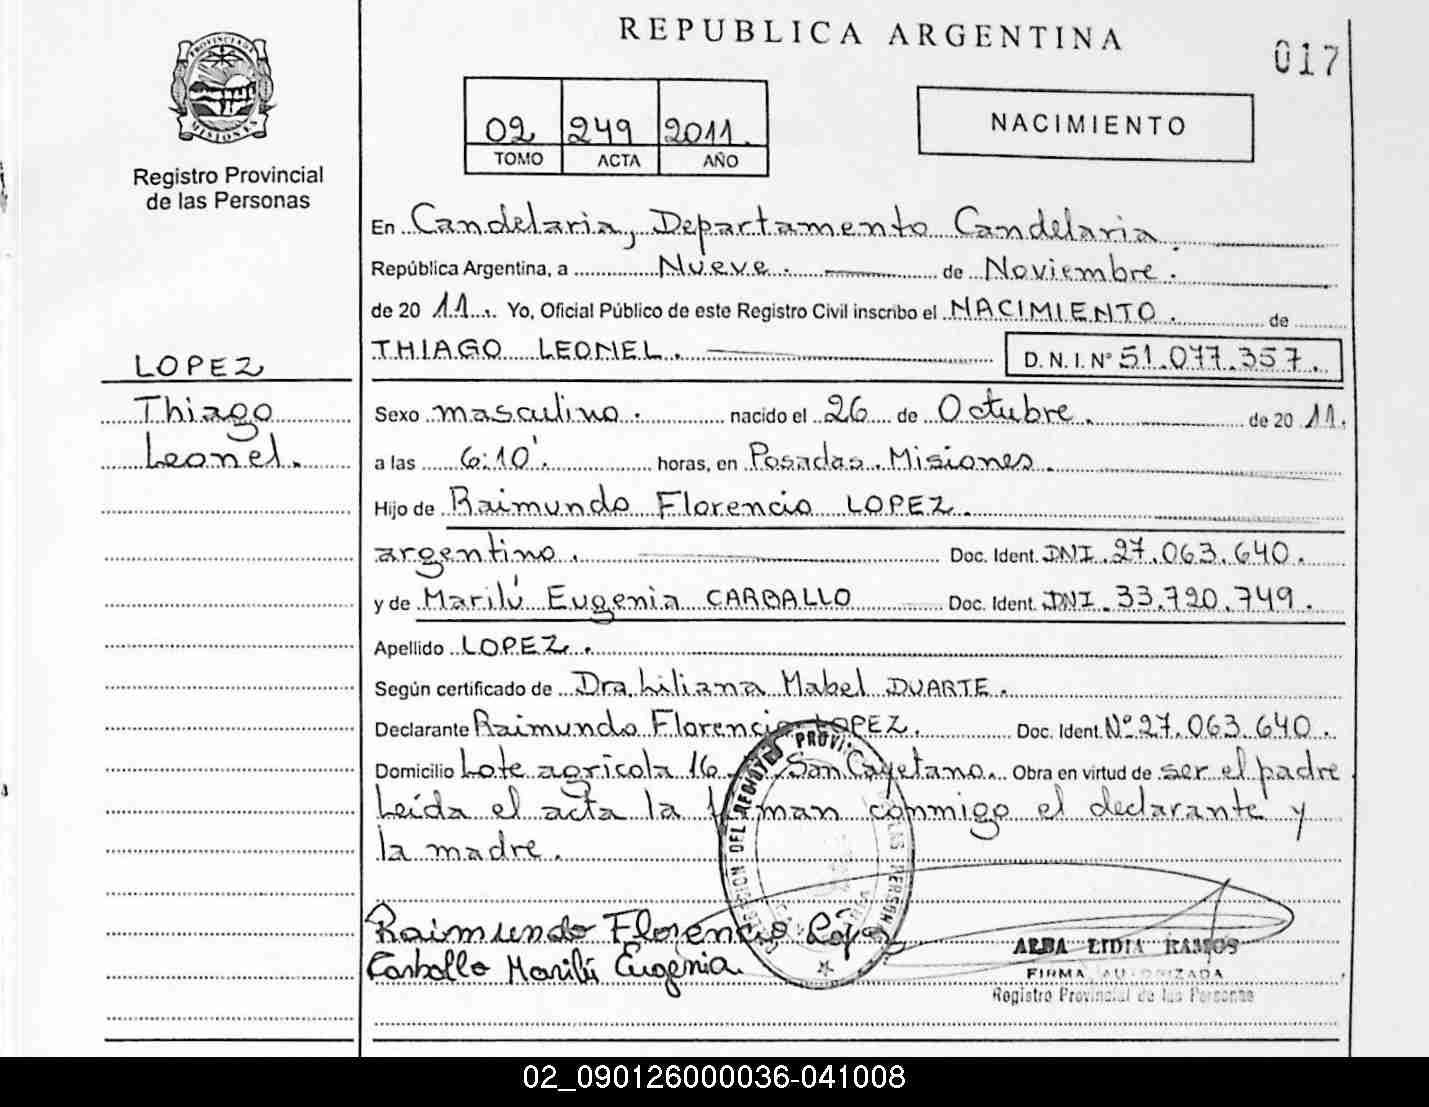 REPUBLICA ARGENTINA
017
PROVINCIA DE
MISIONES
Registro Provincial
de las Personas
02 249 2011.
TOMO ACTA AÑO
NACIMIENTO
En Candelaria, Departamento Candelaria.
República Argentina, a Nueve. de Noviembre.
de 20 11. Yo, Oficial Público de este Registro Civil inscribo el NACIMIENTO. de
THIAGO LEONEL. D. N. I. N° 51.077.357.
LOPEZ
Thiago
Leonel.
Sexo masculino. nacido el 26 de Octubre. de 20 11.
a las 6:10'. horas, en Posadas. Misiones.
Hijo de Raimundo Florencio LOPEZ.
argentino. Doc. Ident. DNI. 27.063.640.
y de Marilú Eugenia CARBALLO Doc. Ident. DNI. 33.720.749.
Apellido LOPEZ.
Según certificado de Dra. Liliana Mabel DUARTE.
Declarante Raimundo Florencio LOPEZ. Doc. Ident. N° 27.063.640.
Domicilio Lote agricola 16 San Cayetano. Obra en virtud de ser el padre
Leída el acta la firman conmigo el declarante y
la madre.
Raimundo Florencio López
Carballo Marilú Eugenia
ALBA LIDIA RAMOS
FIRMA AUTORIZADA
Registro Provincial de las Personas
02_090126000036-041008